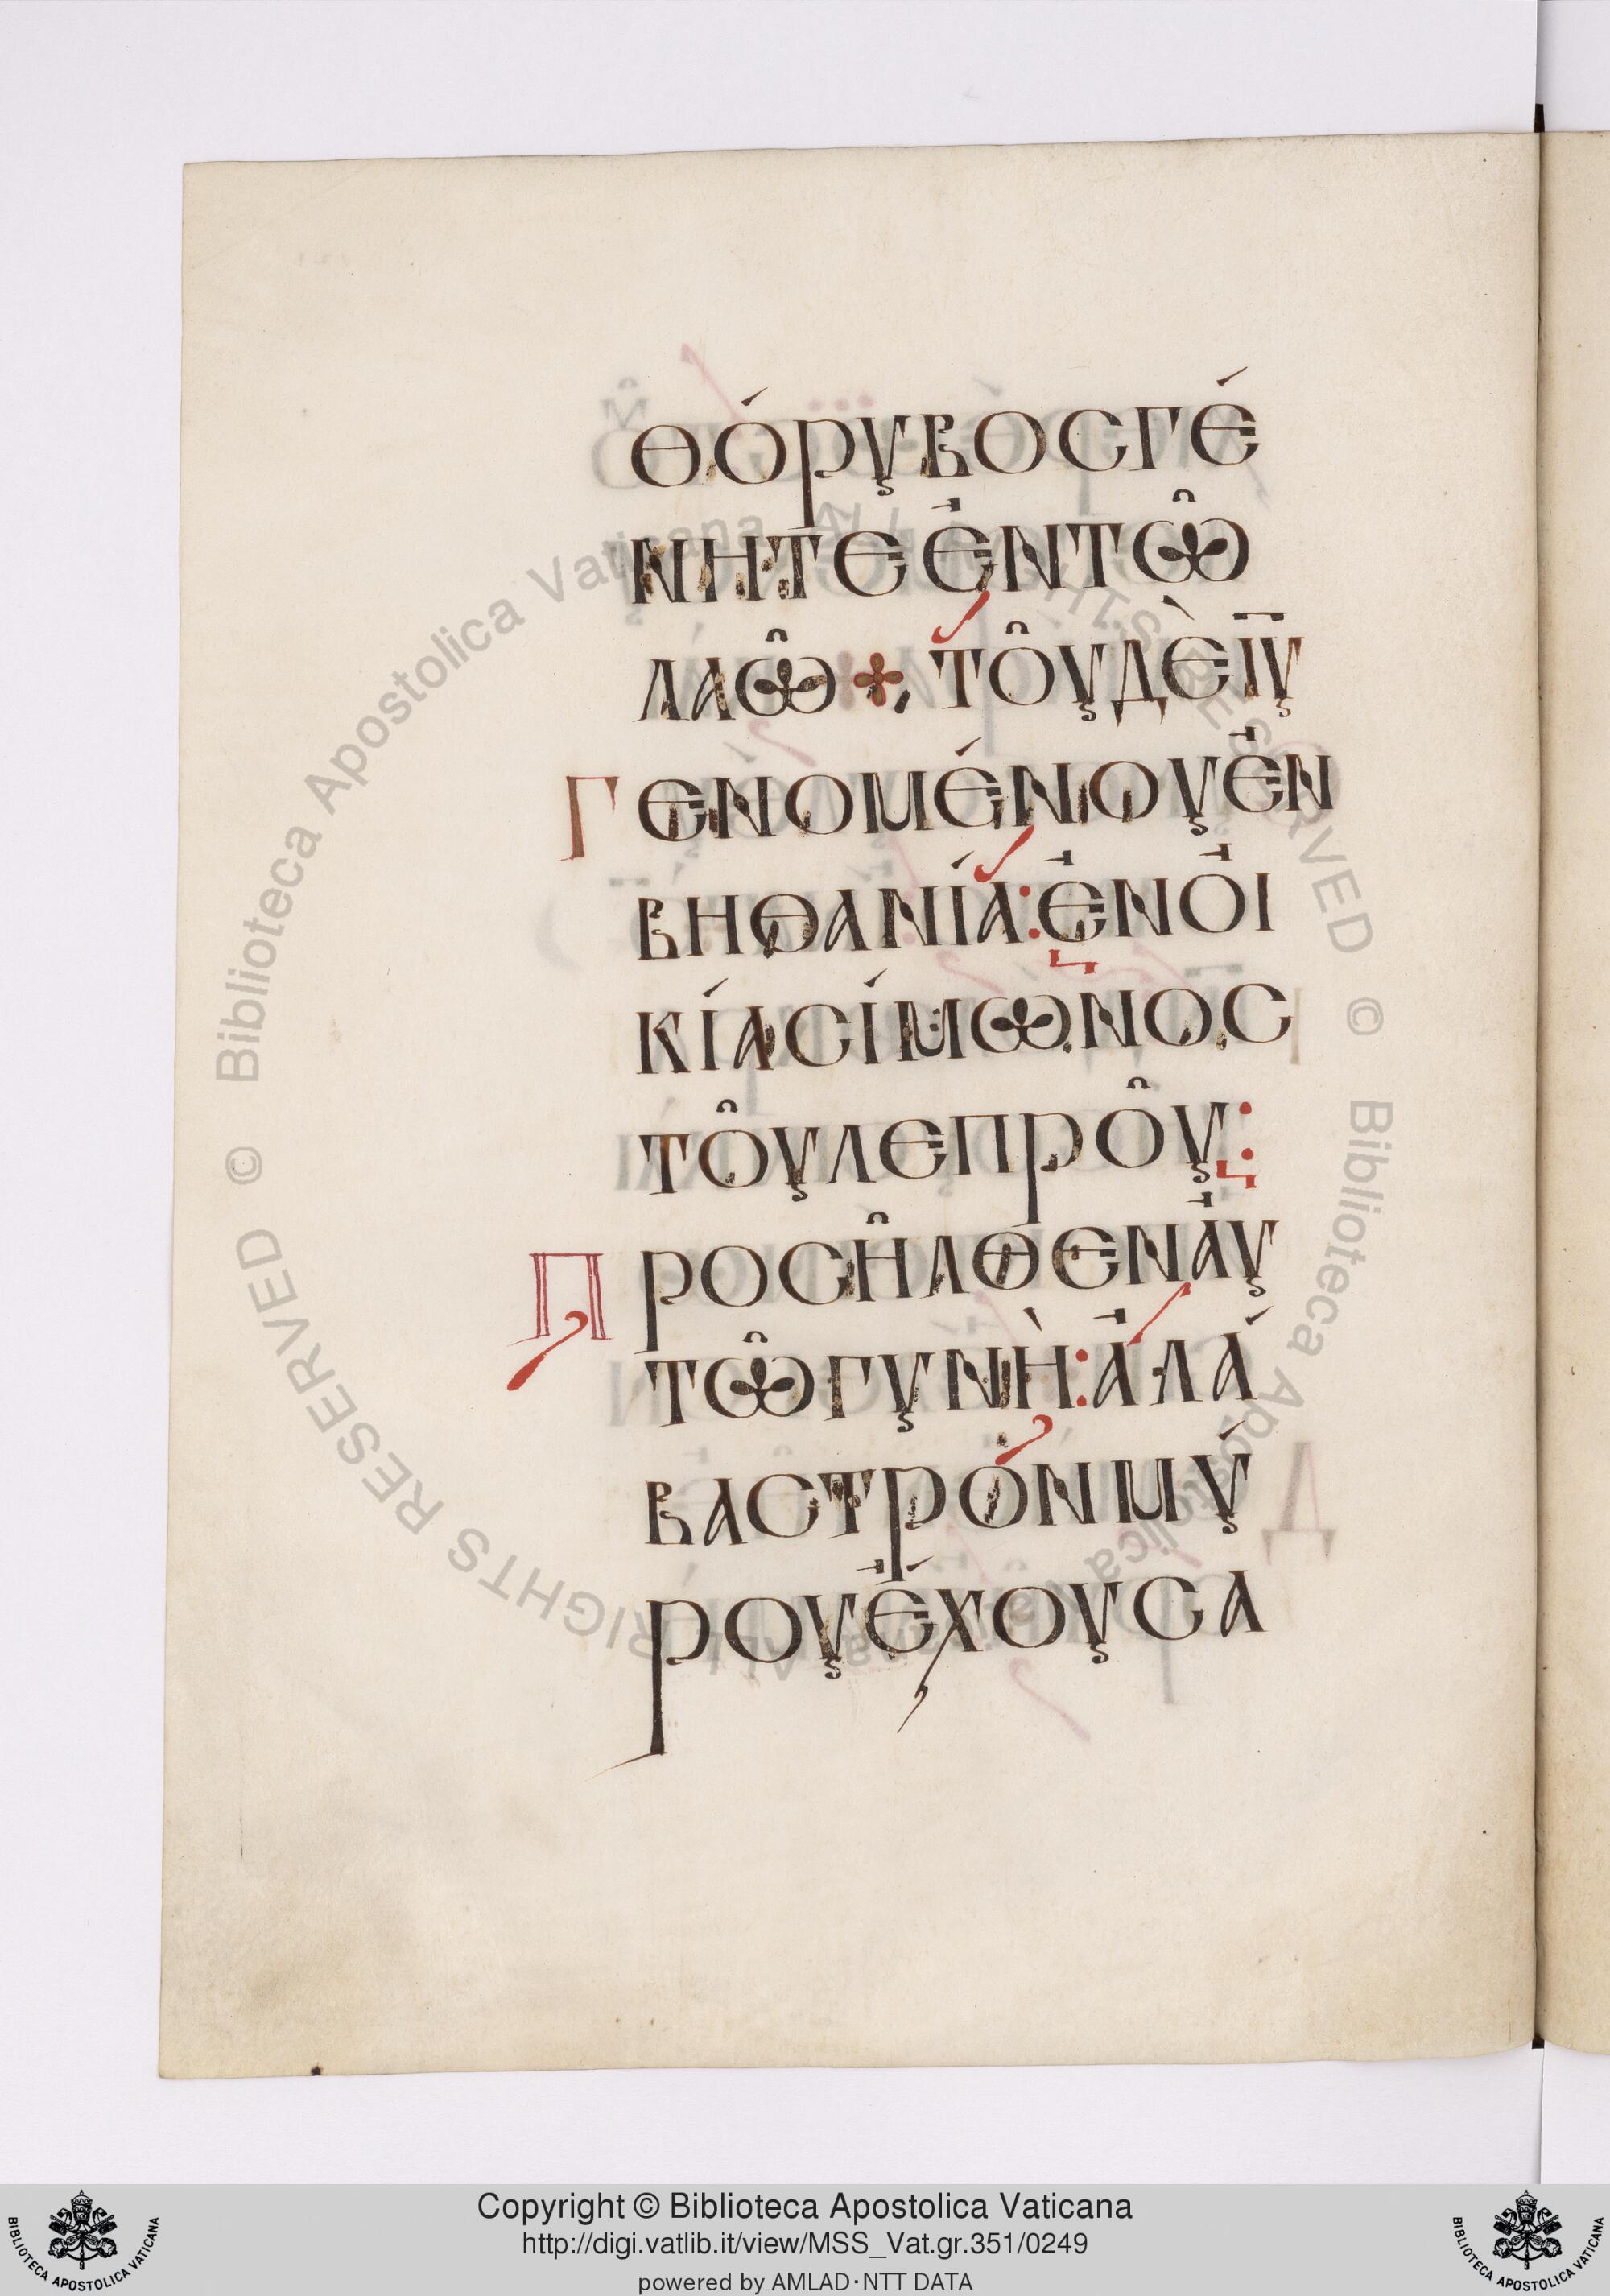 θόρυβος γέ
νητε ἐν τῶ
λαῶ ⁘, τοῦ δὲ ῑῡ
Γ ενομένου ἐν
βηθανία: ἐν οἰ
κία σίμωνος
τοῦ λεπροῦ:
Π ροσῆλθεν ἀυ
τῶ γυνὴ: ἀλά
βαστρον μύ
ρου ἔχουσα
© Biblioteca Apostolica Vaticana ALL RIGHTS RESERVED © Biblioteca Apostolica Vaticana ALL RIGHTS RESERVED
Copyright © Biblioteca Apostolica Vaticana
http://digi.vatlib.it/view/MSS_Vat.gr.351/0249
powered by AMLAD·NTT DATA
BIBLIOTECA APOSTOLICA VATICANA
BIBLIOTECA APOSTOLICA VATICANA